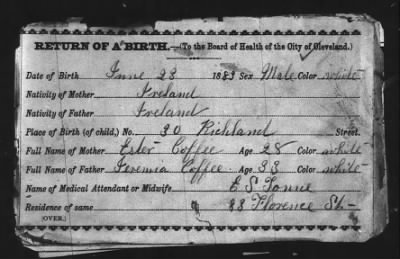 RETURN OF A BIRTH.—(To the Board of Health of the City of Cleveland.)
Date of Birth June 23 1883 Sex Male Color white
Nativity of Mother Ireland
Nativity of Father Ireland
Place of Birth (of child,) No. 30 Richland Street.
Full Name of Mother Ester Coffee Age 28 Color white
Full Name of Father Jeremia Coffee Age 33 Color white
Name of Medical Attendant or Midwife E S
Residence of same 88 Florence St
(OVER.)